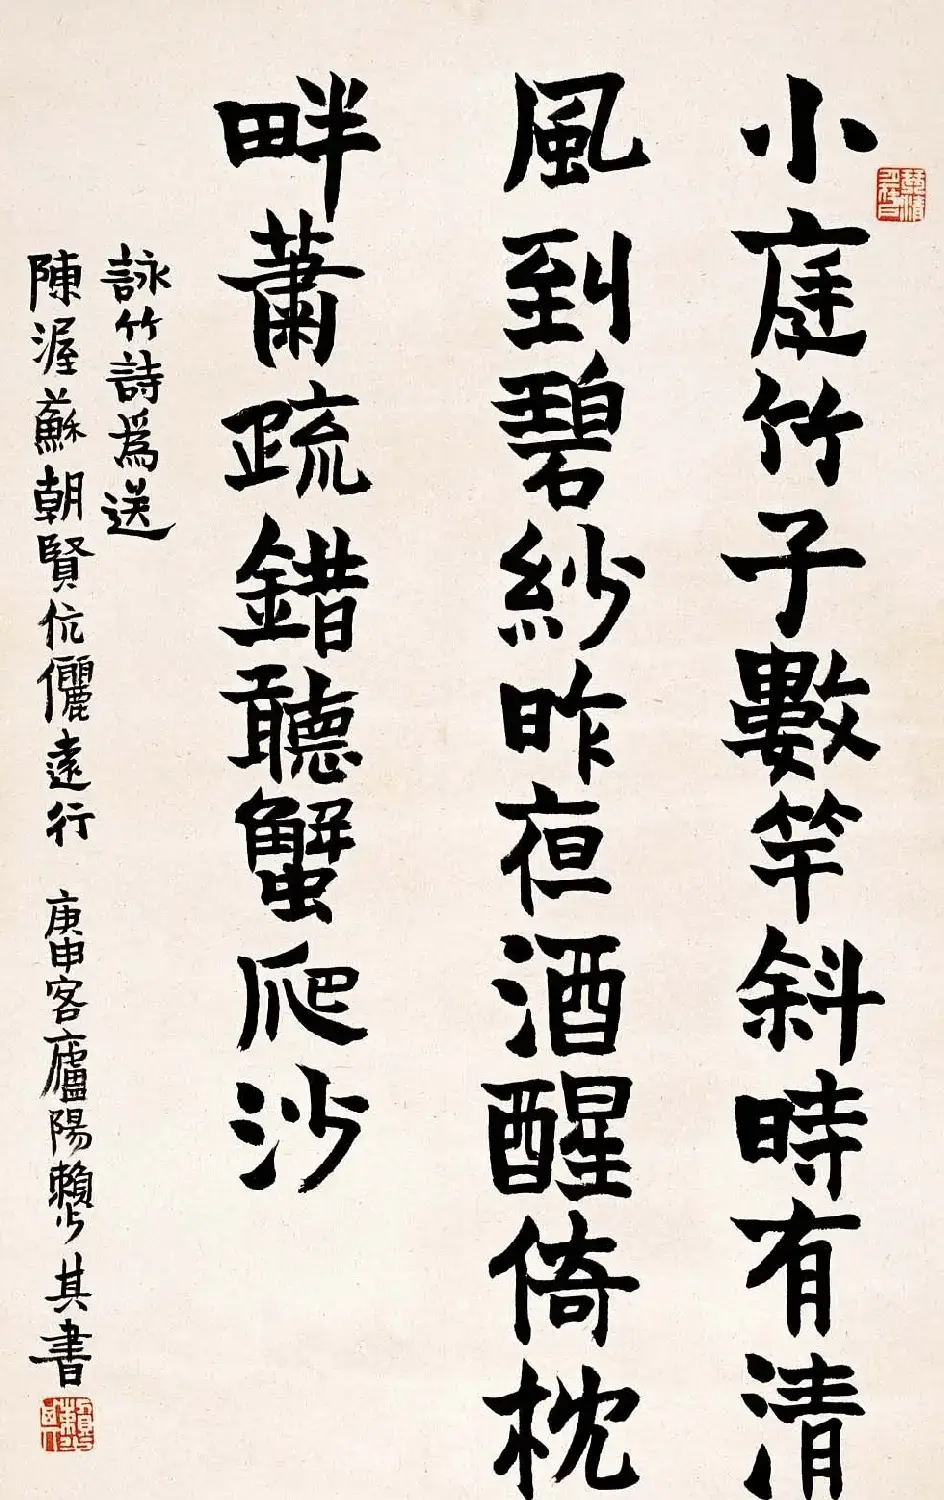 小庭竹子數竿斜時有清
風到碧紗昨夜酒醒倚枕
畔蕭疏錯聽蟹爬沙
詠竹詩爲送
陳渥蘇朝賢伉儷遠行 庚申客廬陽賴少其書